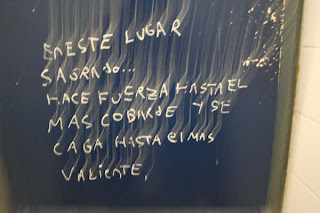 EN ESTE LUGAR
SAGRADO...
HACE FUERZA HASTA EL
MAS COBARDE Y SE
CAGA HASTA el MAS
VALIENTE,